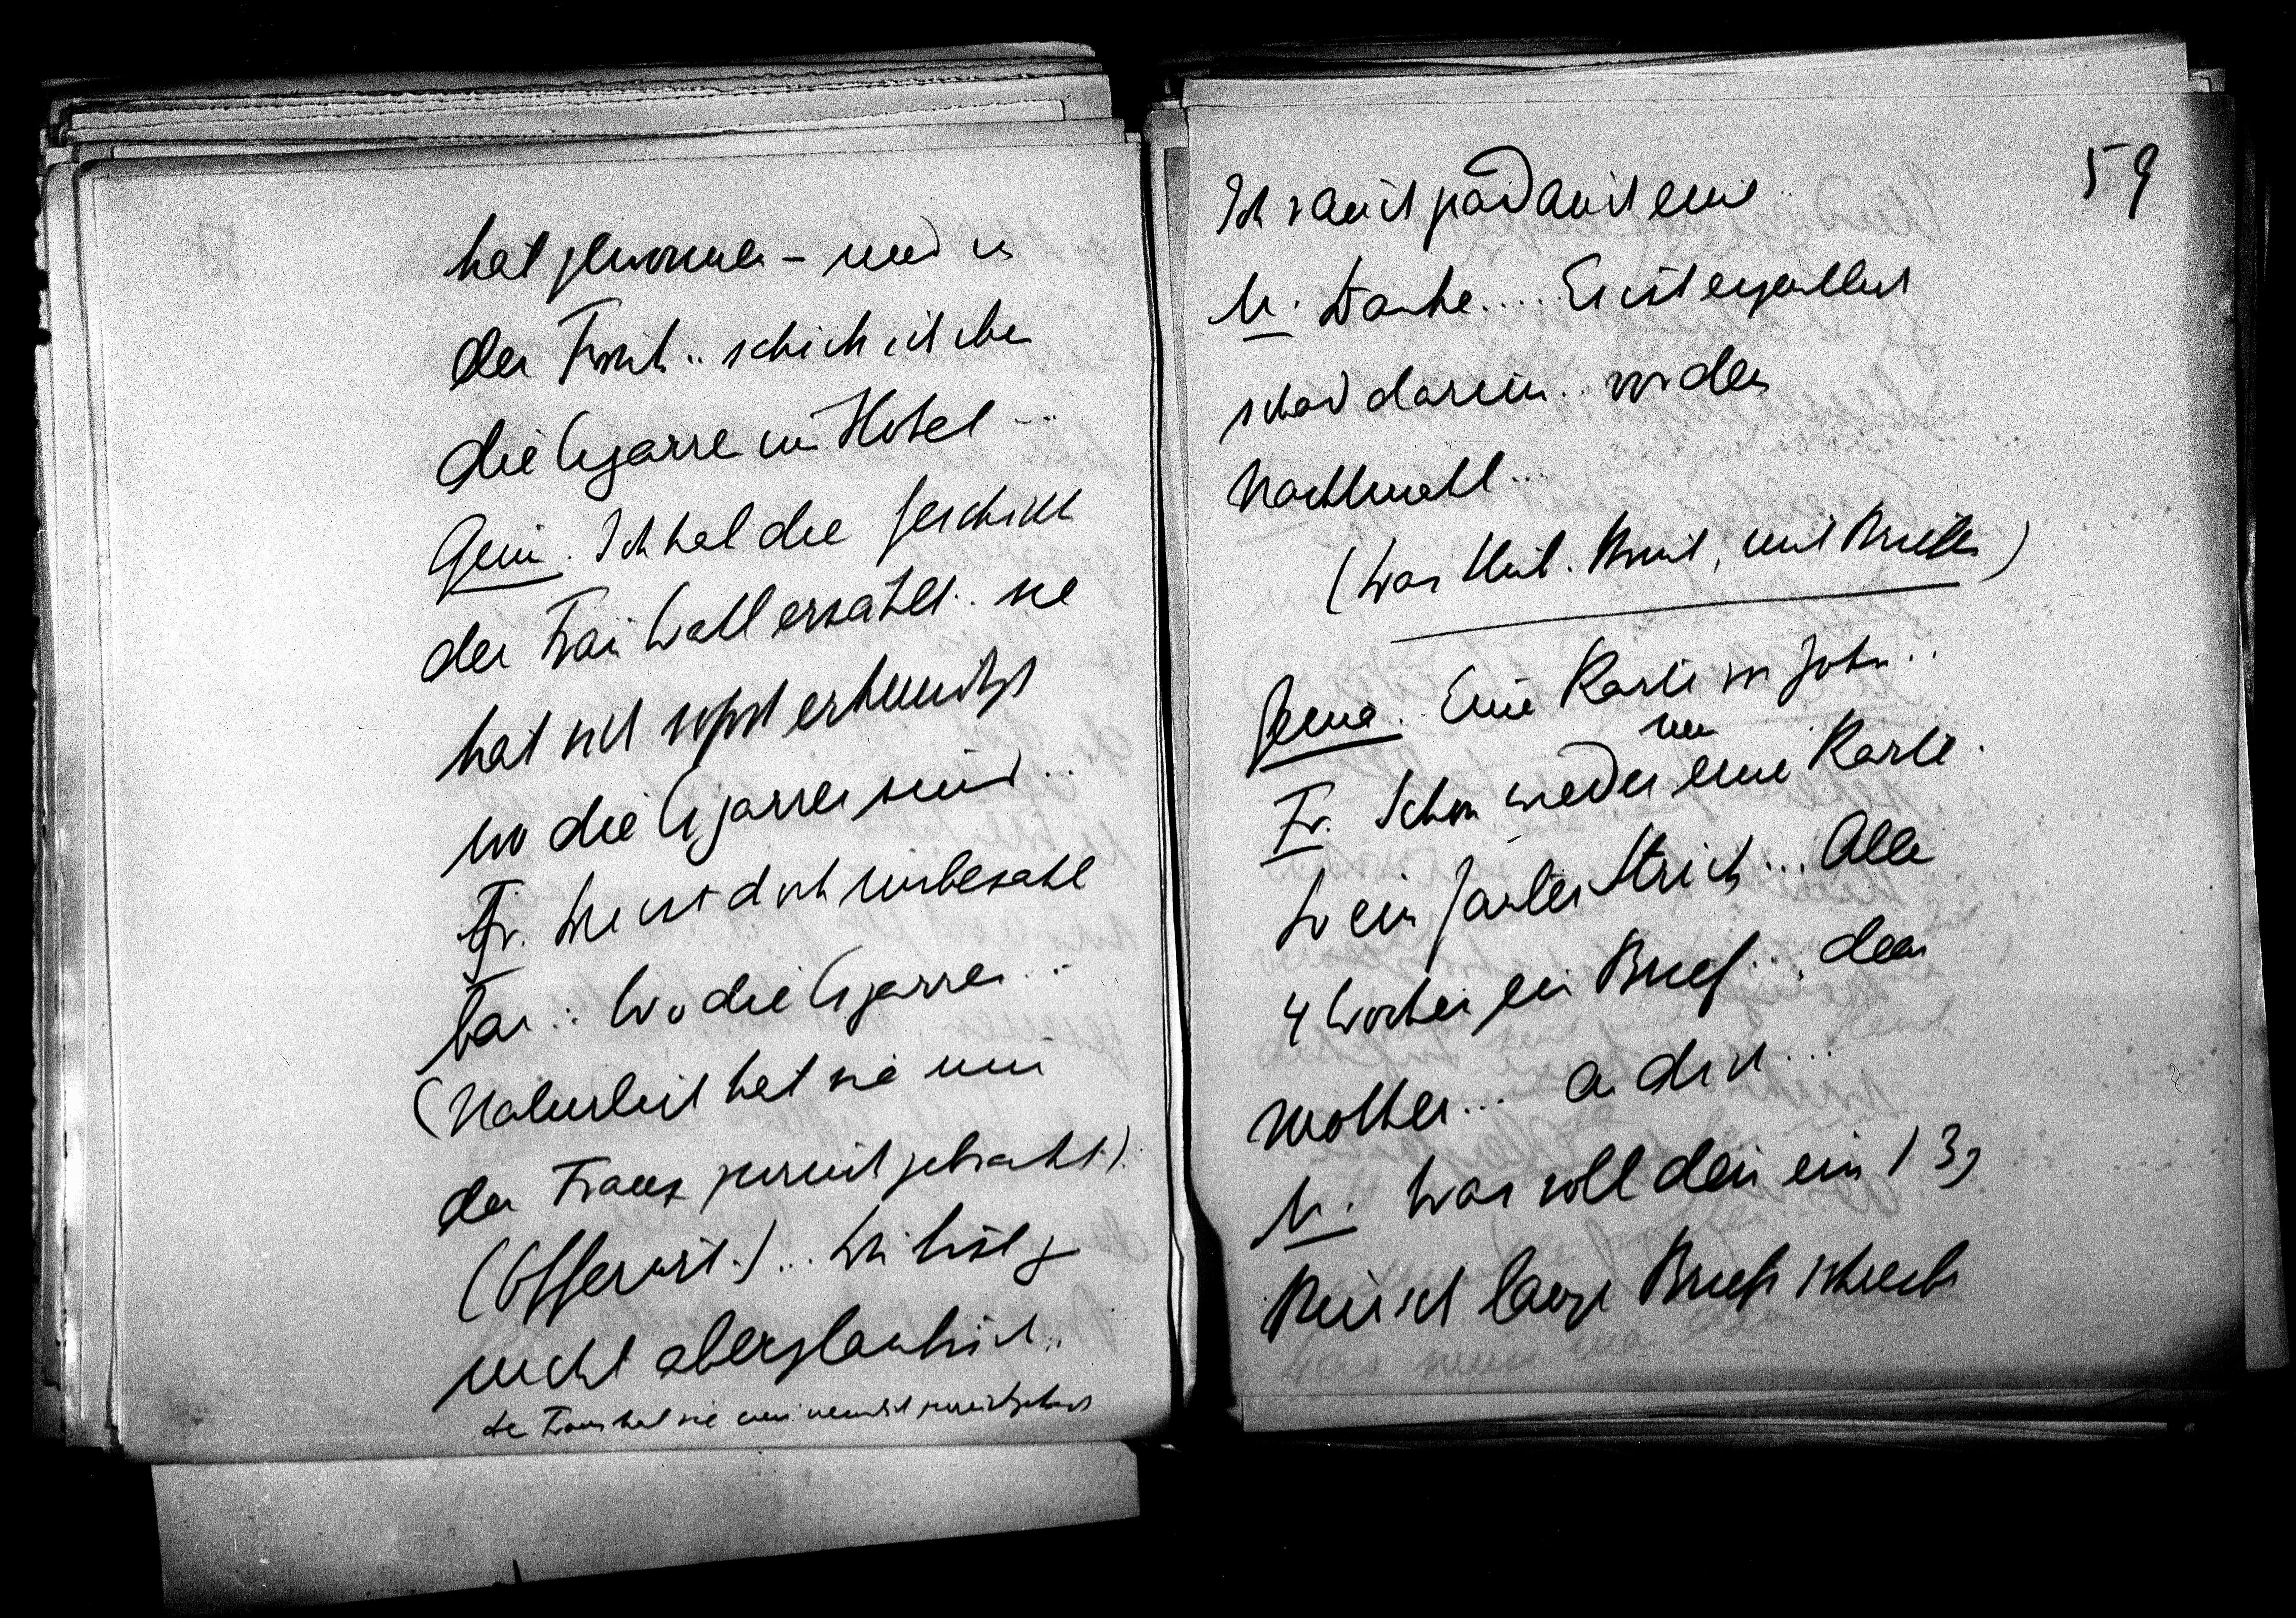 hat genommen – und in
der Fruh.. schick ich ihm
die Cigarren ins Hotel ...
Gem. Ich hab die Geschicht
der Frau Wohl erzählt.. sie
hat sich sofort erkundigt
wo die Cigarren sind ..
Fr. Die ist doch unbezahl
bar.. Wo die Cigarren ..
(Natürlich hat sie mir
der Franz zurückgebracht)
(Offerirt.) ... Wir sind ja
nicht abergläubisch..
der Franz hat sie mir nemlich zurückgebracht
59
Ich rauch grad auch eine ..
M. Danke.... Es ist eigentlich
schad darum.. vor dem
Nachtmahl...
(Was Mit. Brief, mit Brillen)
Gema. Eine Karte von John..
nur
Fr. Schon wieder eine Karte.
So ein fauler Strick... Alle
4 Wochen ein Brief.... dem
Mutter... an dich ...
M. Was soll denn ein 13j
Mensch lange Briefe schreib